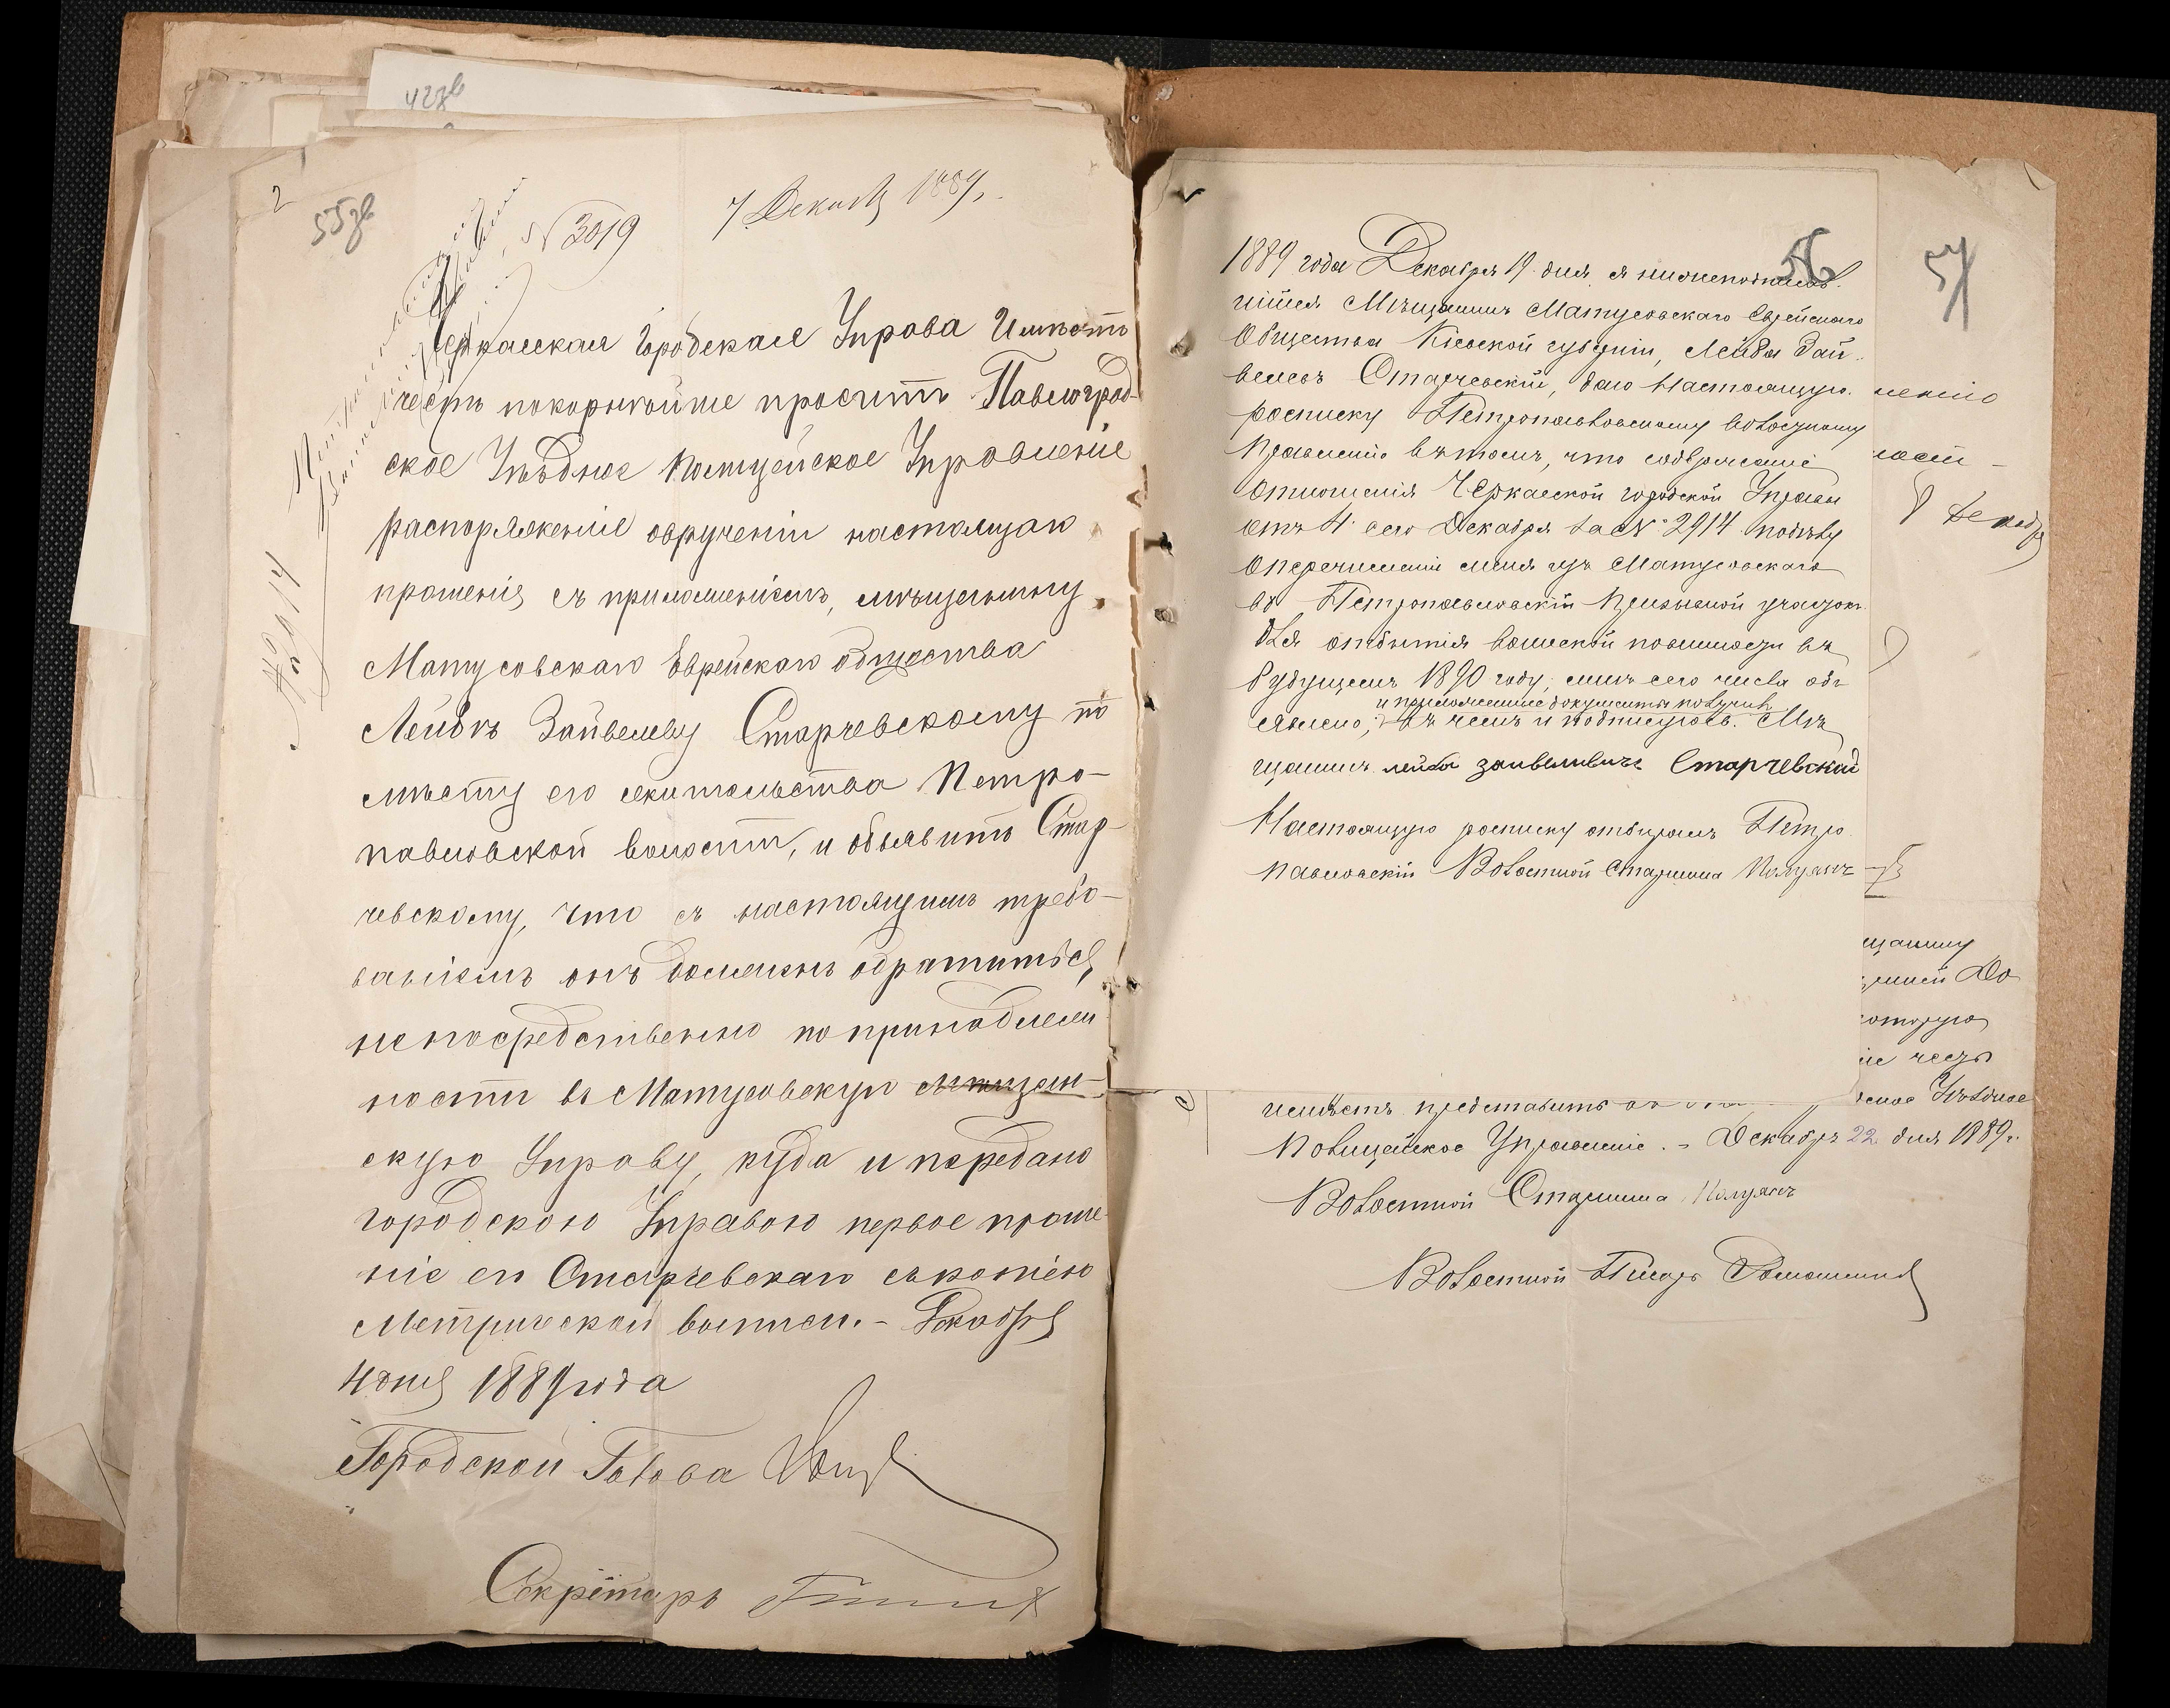 42зв
2
55зв
N 3019
7 Декабр 1889 г.
№ 2914
Черкасская Городская Управа Имѣетъ
честь покорнѣйше просить Павлоград-
ское Уѣздное Полицейское Управленіе
распоряженіе овручении настоящаго
прошенія съ приложеніемъ, мѣщанину
Матусовскаго Еврейскаго общества
Лейбѣ Зайвелеву Старчевскому по
мѣсту его жительства Петро-
павловской волости, и объявить Стар-
чевскому, что съ настоящимъ требо-
ваніемъ онъ долженъ обратиться
непосредственно по принадлеж
ности въ Матусовскую мѣщан-
скую Управу, куда и передано
городскою Управою первое проше-
ніе его Старчевскаго съ копіею
Метрической выписи. - Декабря
4 дня 1889 года
Городской Голова
Секретарь
56
1889 года Декабря 19 дня, я нижеподписав-
шійся Мѣщанинъ Матусовскаго Еврейскаго
Общества Кіевской губерніи, Лейба Зай-
велевъ Старчевскій, даю настоящую
росписку Петропавловскому волостному
Правленію вътомъ, что содержаніе
отношенія Черкасской городской Управы
отъ 4 сего Декабря за № 2914 поделу
оперечисленіи меня изъ Матусовскаго
въ Петропавловскій призывной участокъ
для отбытія воинской повинности въ
будущемъ 1890 году, мнѣ сего числа объ-
и приложенные документы получилъ
явлено, въ чемъ и подписуюсь. Мѣ
щанинъ лейба зайвеливичъ Старчевский
Настоящую росписку отбиралъ Петро
павловскій Волостной Старшина
57
ленію
ност-
8 Декабр
щанину
шией До
которую
ие честь
ское Уѣздное
имѣетъ представить
Полицейское Управленіе. - Декабря 22 дня 1889 г.
Волостной Старшина
Волостной Писарь